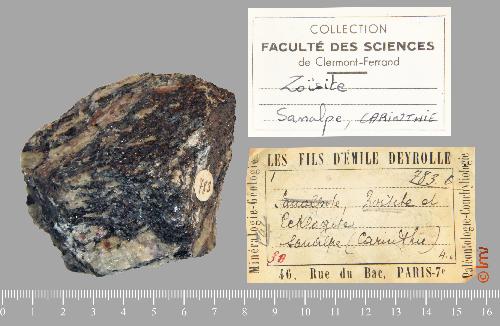 COLLECTION
FACULTÉ DES SCIENCES
de Clermont-Ferrand
Zoïsite
Sanalpe, CARINTHIE
LES FILS D'ÉMILE DEYROLLE
1
283
Zoïsite et
Eklogite
Sanalpe (Carinthie)
46, Rue du Bac, PARIS-7e
Minéralogie-Géologie
Paléontologie-Conchyliologie
© lmv
0 1 2 3 4 5 6 7 8 9 10 11 12 13 14 15 16